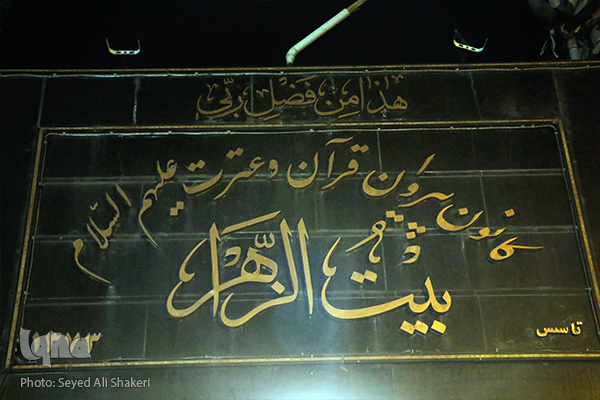 هٰذا مِن فَضْلِ رَبّی
کانون پیروان قرآن و عترت علیهم السّلام
بیتُ الزّهرا
تاسس ۱۳۷۳
iqna
Photo: Seyed Ali Shakeri